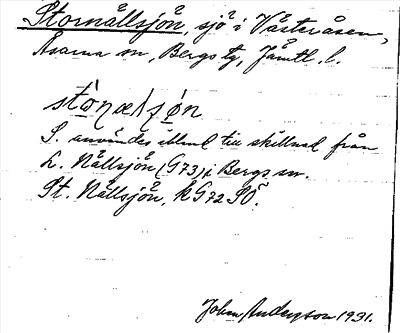 Stornållsjön, sjö i Västeråsen,
Åsarna sn, Bergs tg, Jämtl. l.
S. användes ibland till skillnad från
L. Nållsjön (G73) i Bergs sn.
St. Nållsjön, kG72 SO.
John Anderzson 1931.